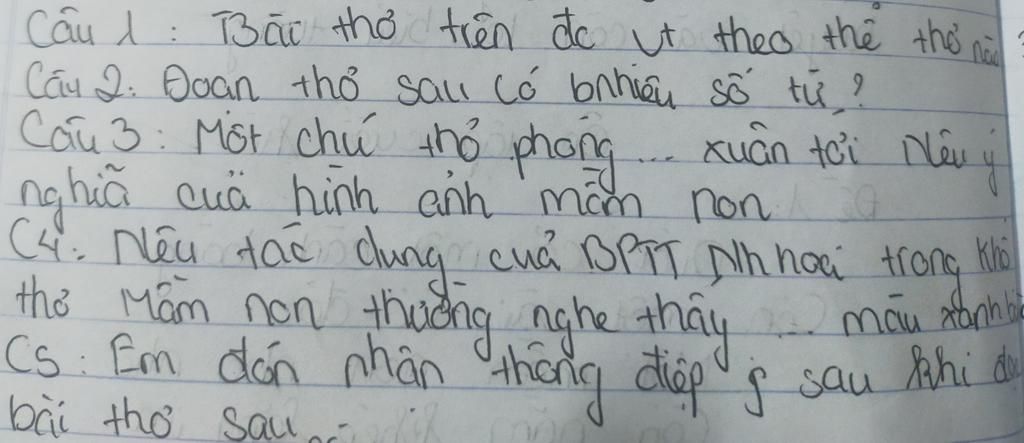 Câu 1 : Bài thơ trên đc vt theo thể thơ nào
Câu 2. Đoạn thơ sau có bnhiêu số từ ?
Câu 3 : Một chú thỏ phóng ... xuân tới Nêu ý
nghĩa của hình ảnh mầm non
C4: Nêu tác dụng của BPTT Nh hoá trong khổ
thơ Mầm non thường nghe thấy ... màu xanh
C5 : Em đón nhận thông điệp j sau khi đọc
bài thơ sau